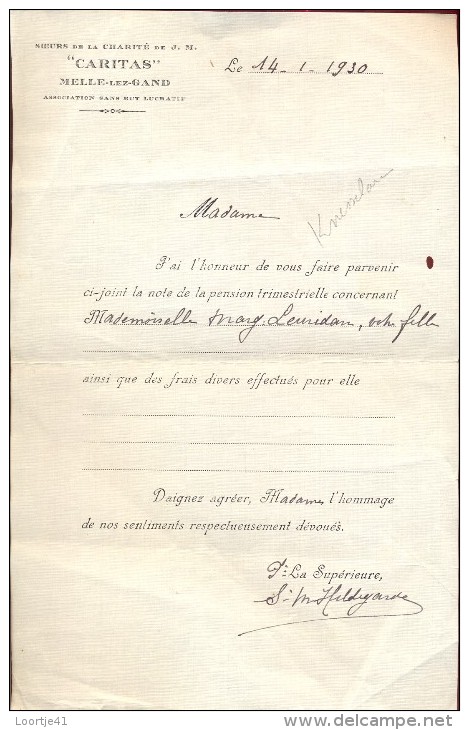 SŒURS DE LA CHARITÉ DE J. M.
"CARITAS"
MELLE-LEZ-GAND
ASSOCIATION SANS BUT LUCRATIF
Le 14-1-1930
Madame
J'ai l'honneur de vous faire parvenir
ci-joint la note de la pension trimestrielle concernant
Mademoiselle Marg. Leuridan, votre fille
ainsi que des frais divers effectués pour elle
Daignez agréer, Madame, l'hommage
de nos sentiments respectueusement dévoués.
Pr La Supérieure,
Sr M Hildegarde
Loortje41
delcampe.net